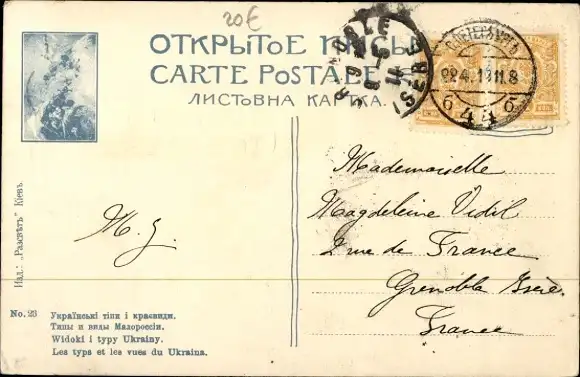 20€
ОТКРЫТОЕ
CARTE POSTALE
ЛИСТОВНА КАРТКА.
GRENOBLE
ISERE
6 44 6
Mademoiselle
Magdeleine Vidil
2 rue de France
Grenoble Isère
France
M. J.
Изд.: „Разсвѣтъ“ Кіевъ
No. 23
Українські тіпи і краєвиди.
Типы и виды Малороссіи.
Widoki i typy Ukrainy.
Les typs et les vues du Ukraina.